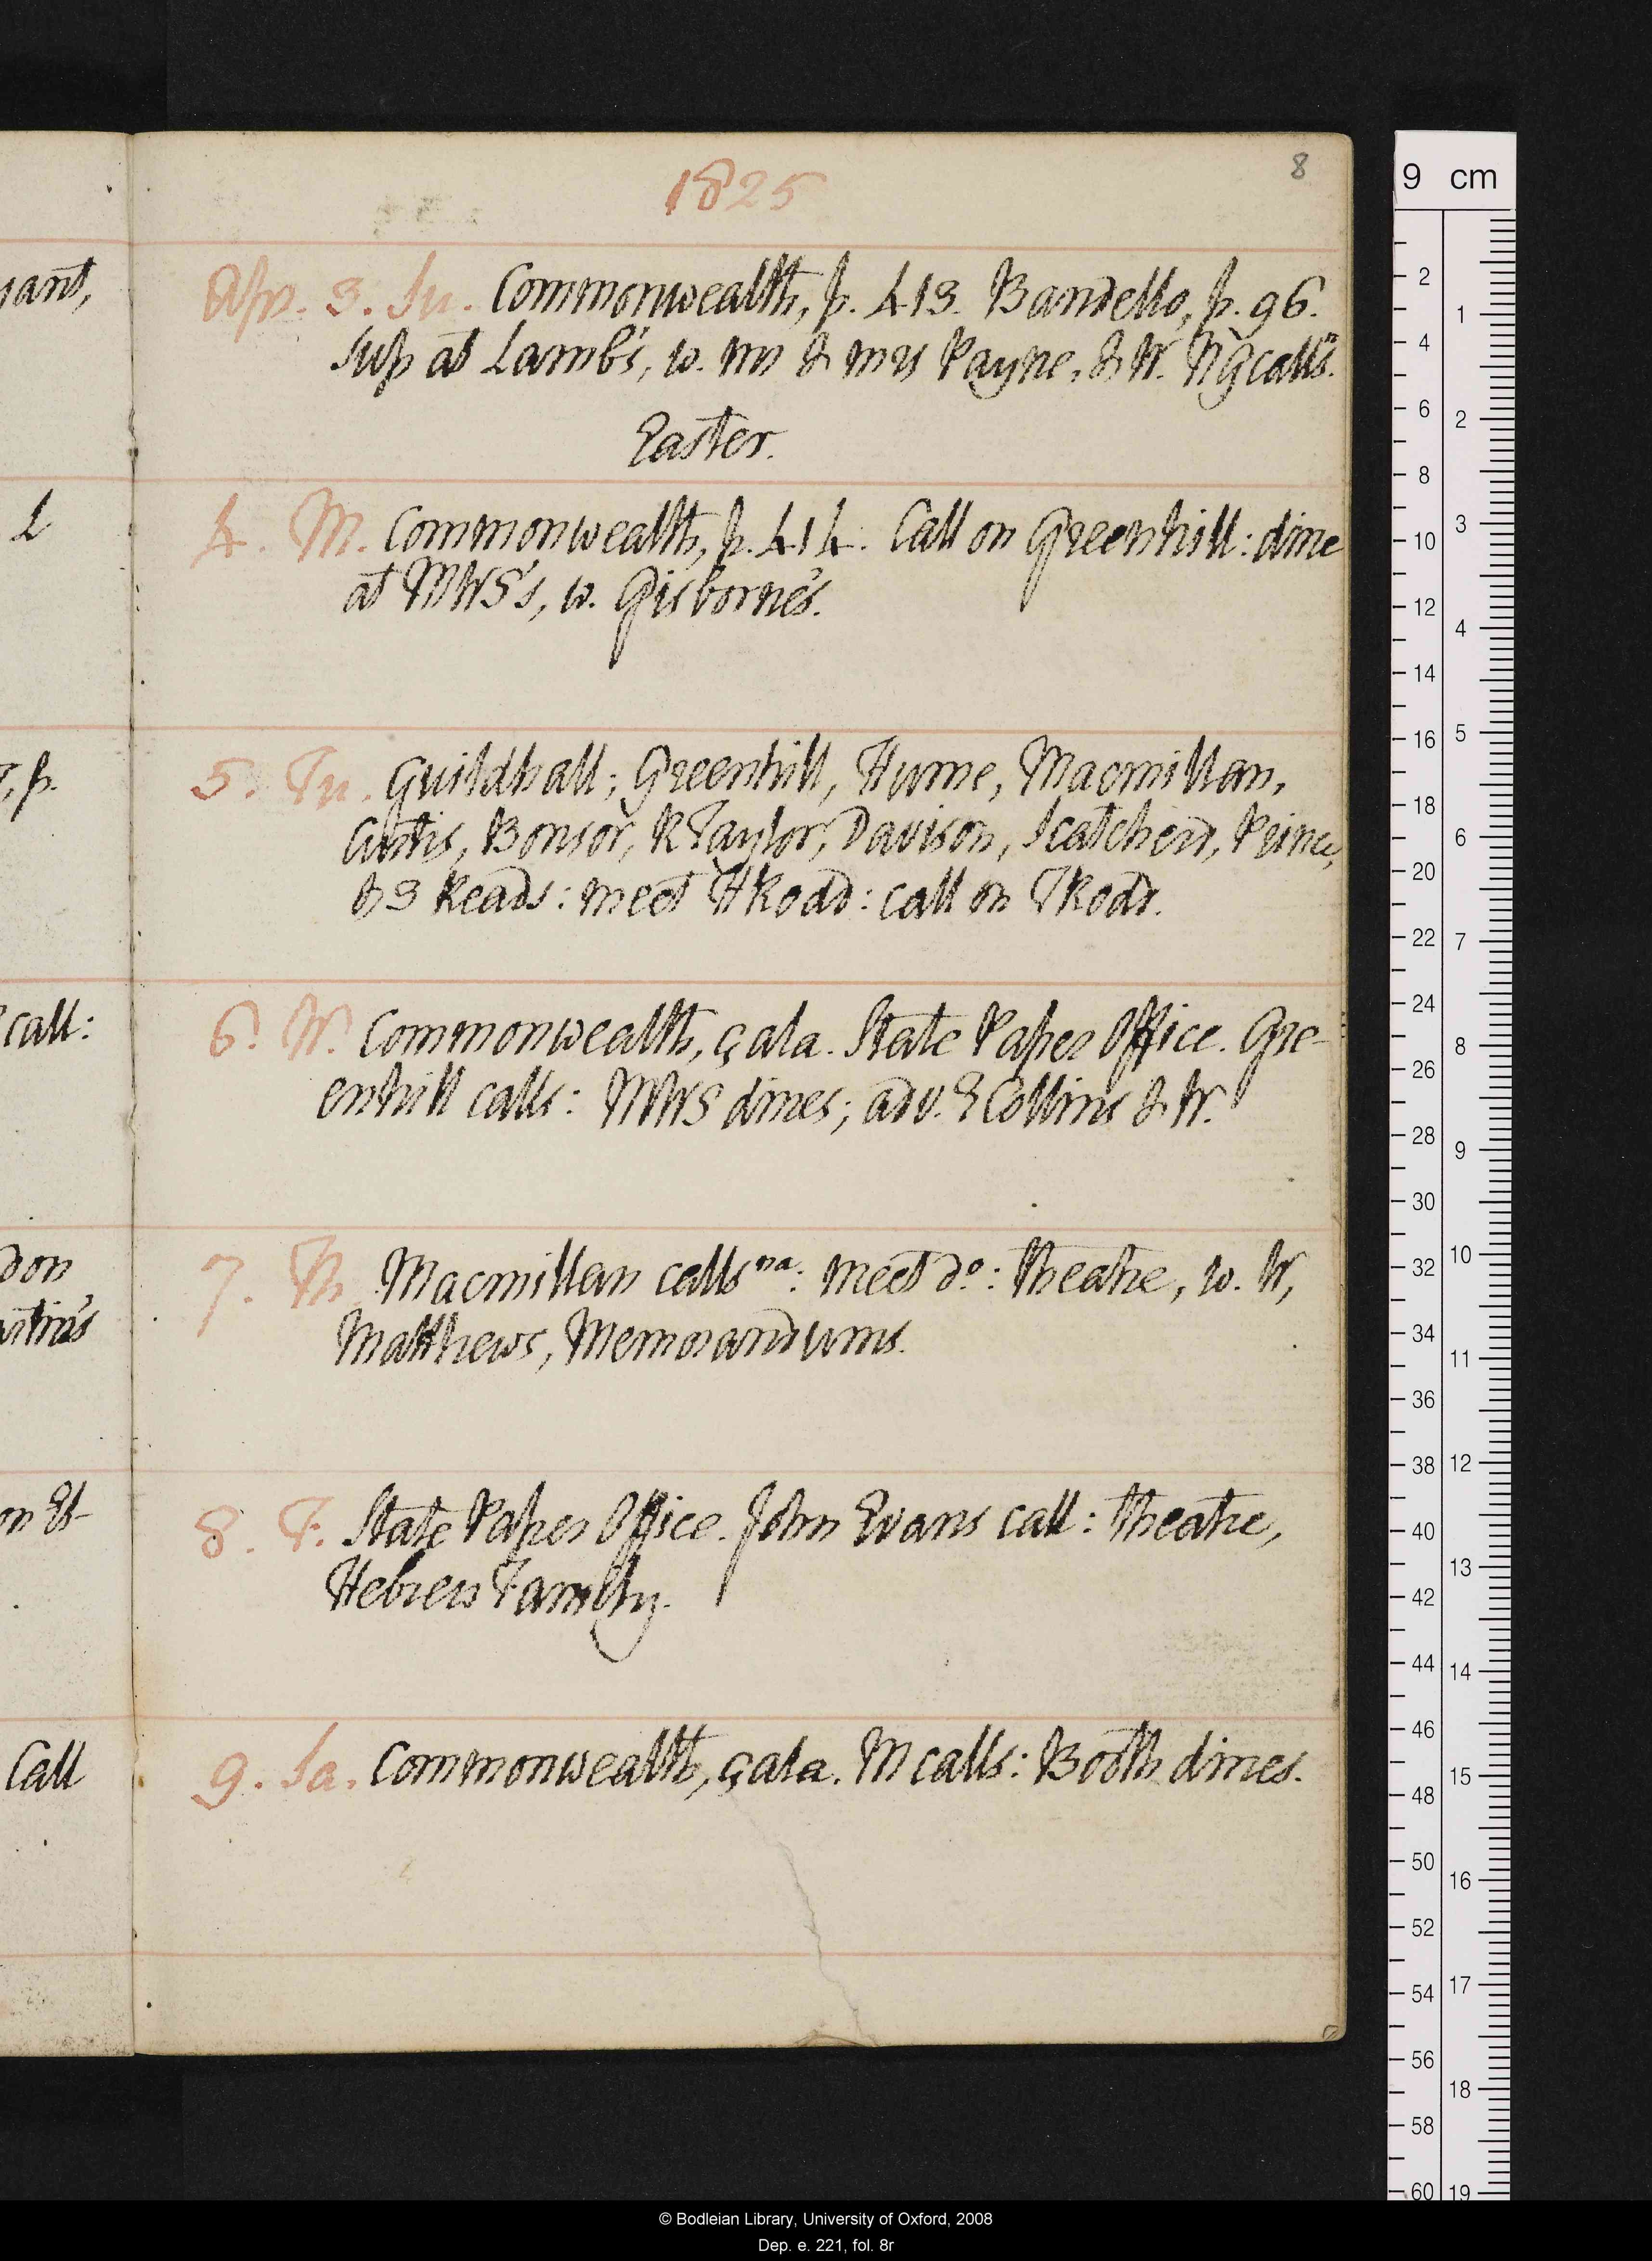 1825
8
Apr. 3. Su. Commonwealth, p. 413. Bandello, p. 96.
Sup at Lamb's, w. mr & mrs Payne, & W.
Easter.
4. M. Commonwealth, p. 414. Call on Greenhill: dine
at MWS's, w. Gisborne's.
5. Tu. Guildhall; Greenhill, Hume, Macmillan,
Curtis, Bonsor, RTaylor, Davison, Scatcherd,
& 3 Reads: meet HRodd: call on TRodd.
6. W. Commonwealth, çala. State Paper Office. Gre-
enhill calls: MWS dines; adv. E Collins & W.
7. Th. Macmillan calls na: meet do: theatre, w. W,
Matthews, Memorandums.
8. F. State Paper Office. John Evans call: theatre,
Hebrew Family.
9. Sa. Commonwealth, çala. M calls: Booth dines.
yant,
L
p.
call:
don
Call
9 cm
2 4 6 8 10 12 14 16 18 20 22 24 26 28 30 32 34 36 38 40 42 44 46 48 50 52 54 56 58 60
1 2 3 4 5 6 7 8 9 10 11 12 13 14 15 16 17 18 19
© Bodleian Library, University of Oxford, 2008
Dep. e. 221, fol. 8r